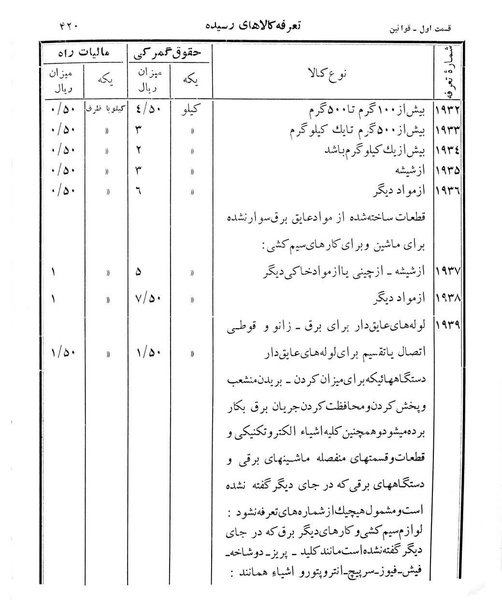 قسمت اول - قوانین تعرفه کالاهای رسیده ۴۲۰
شماره تعرفه نوع کالا حقوق گمرکی مالیات راه
یکه میزان ریال یکه میزان ریال
۱۹۳۲ بیش از ۱۰۰ گرم تا ۵۰۰ گرم کیلو ۴/۵۰ کیلو با ظرف ۰/۵۰
۱۹۳۳ بیش از ۵۰۰ گرم تا یک کیلو گرم » ۳ » ۰/۵۰
۱۹۳۴ بیش از یک کیلو گرم باشد » ۲ » ۰/۵۰
۱۹۳۵ از شیشه » ۳ » ۰/۵۰
۱۹۳۶ از مواد دیگر » ۶ » ۰/۵۰
قطعات ساخته شده از مواد عایق برق سوار نشده
برای ماشین و برای کارهای سیم کشی :
۱۹۳۷ از شیشه - از چینی یا از مواد خاکی دیگر » ۵ » ۱
۱۹۳۸ از مواد دیگر » ۷/۵۰ » ۱
۱۹۳۹ لوله های عایق دار برای برق - زانو و قوطی
اتصال یا تقسیم برای لوله های عایق دار » ۱/۵۰ » ۱/۵۰
دستگاههائیکه برای میزان کردن - بریدن منشعب
و پخش کردن و محافظت کردن جریان برق بکار
برده میشود و همچنین کلیه اشیاء الکتروتکنیکی و
قطعات و قسمتهای منفصله ماشینهای برقی و
دستگاههای برقی که در جای دیگر گفته نشده
است و مشمول هیچیک از شماره های تعرفه نشود :
لوازم سیم کشی و کارهای دیگر برق که در جای
دیگر گفته نشده است مانند کلید - پریز - دوشاخه -
فیش - فیوز - سرپیچ - انتروپتورو اشیاء همانند :